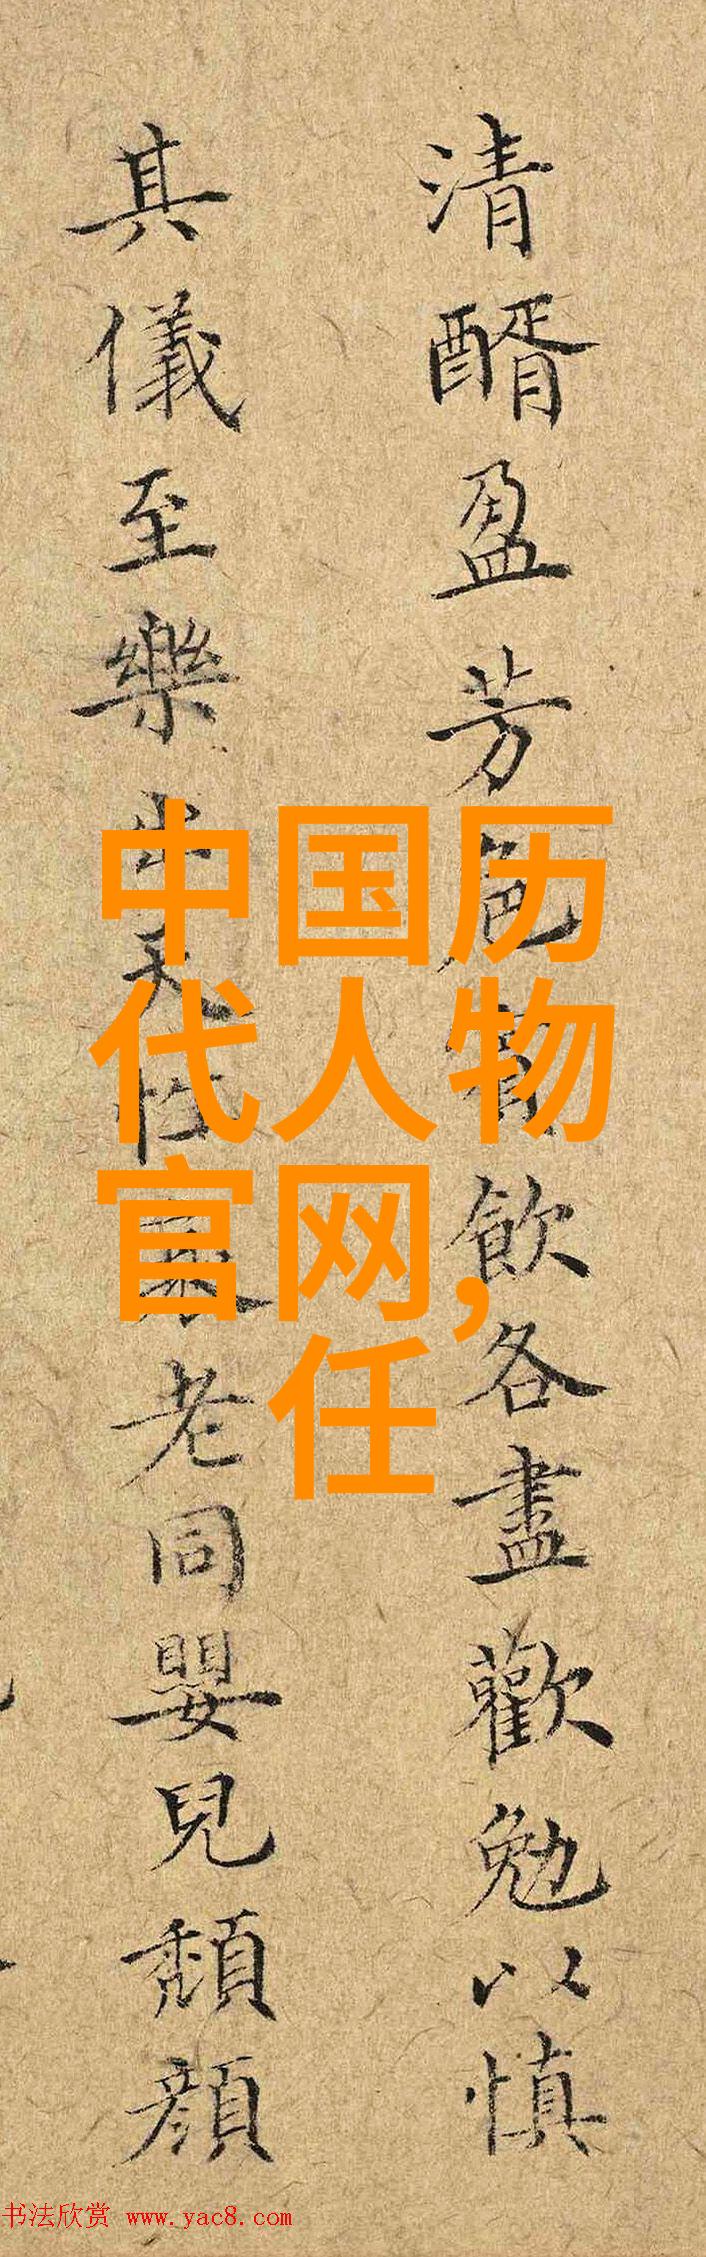 清醑盈芳
飲各盡歡勉以慎
其儀至樂出天性
老同嬰兒頹顏
中国历
代人物
官网,
任
书法欣赏 www.yac8.com